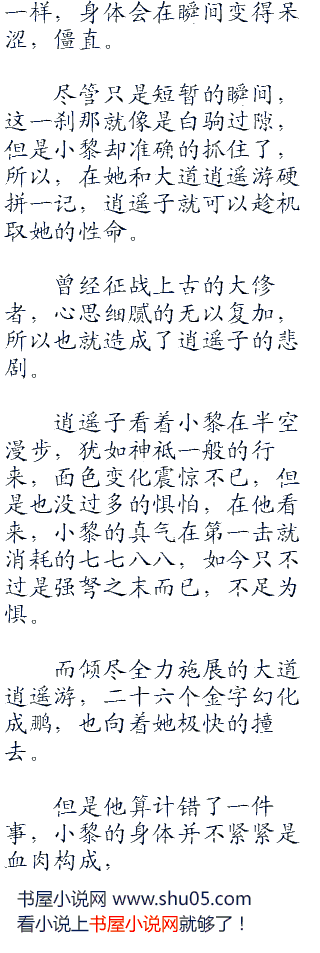 一样，身体会在瞬间变得呆
涩，僵直。
尽管只是短暂的瞬间，
这一刹那就像是白驹过隙，
但是小黎却准确的抓住了，
所以，在她和大道逍遥游硬
拼一记，逍遥子就可以趁机
取她的性命。
曾经征战上古的大修
者，心思细腻的无以复加，
所以也就造成了逍遥子的悲
剧。
逍遥子看着小黎在半空
漫步，犹如神祇一般的行
来，面色变化震惊不已，但
是也没过多的惧怕，在他看
来，小黎的真气在第一击就
消耗的七七八八，如今只不
过是强弩之末而已，不足为
惧。
而倾尽全力施展的大道
逍遥游，二十六个金字幻化
成鹏，也向着她极快的撞
去。
但是他算计错了一件
事，小黎的身体并不紧紧是
血肉构成，
书屋小说网 www.shu05.com
看小说上书屋小说网就够了！